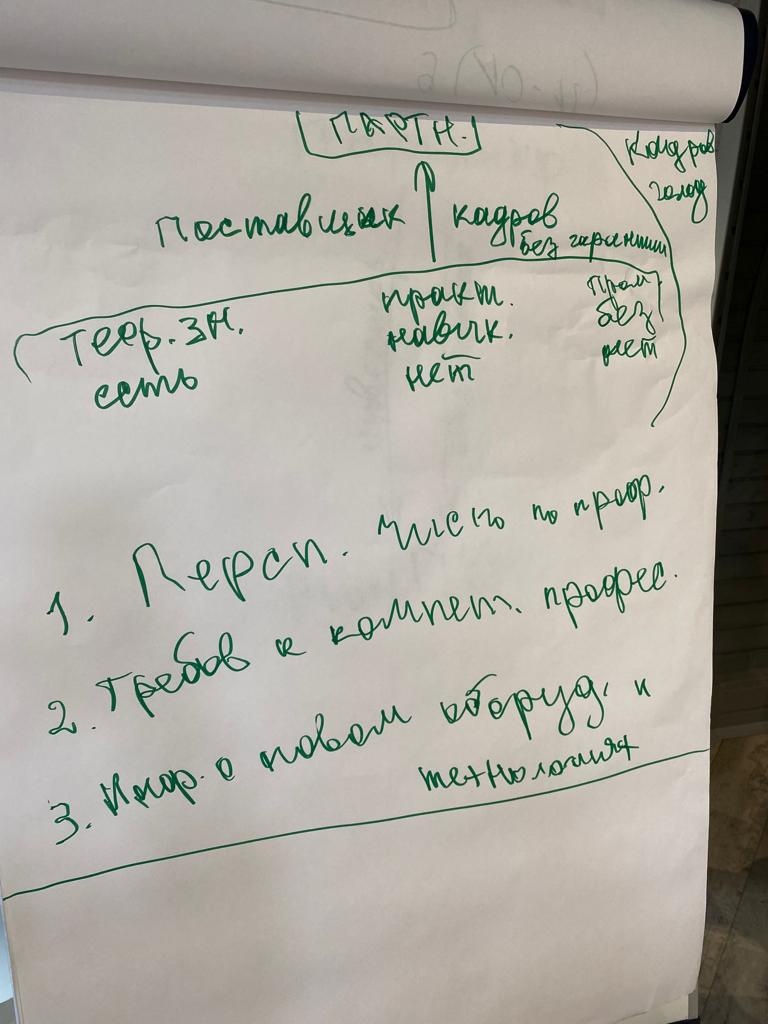 ПАРТН.
Кадров
голод
Поставщик кадров
без гарантии
теор. зн.
есть
практ.
навык.
нет
пром
без
нет
1. Персп. числ по проф.
2. Требов к компет. професс.
3. Инфор. о новом оборуд. и
технологиях